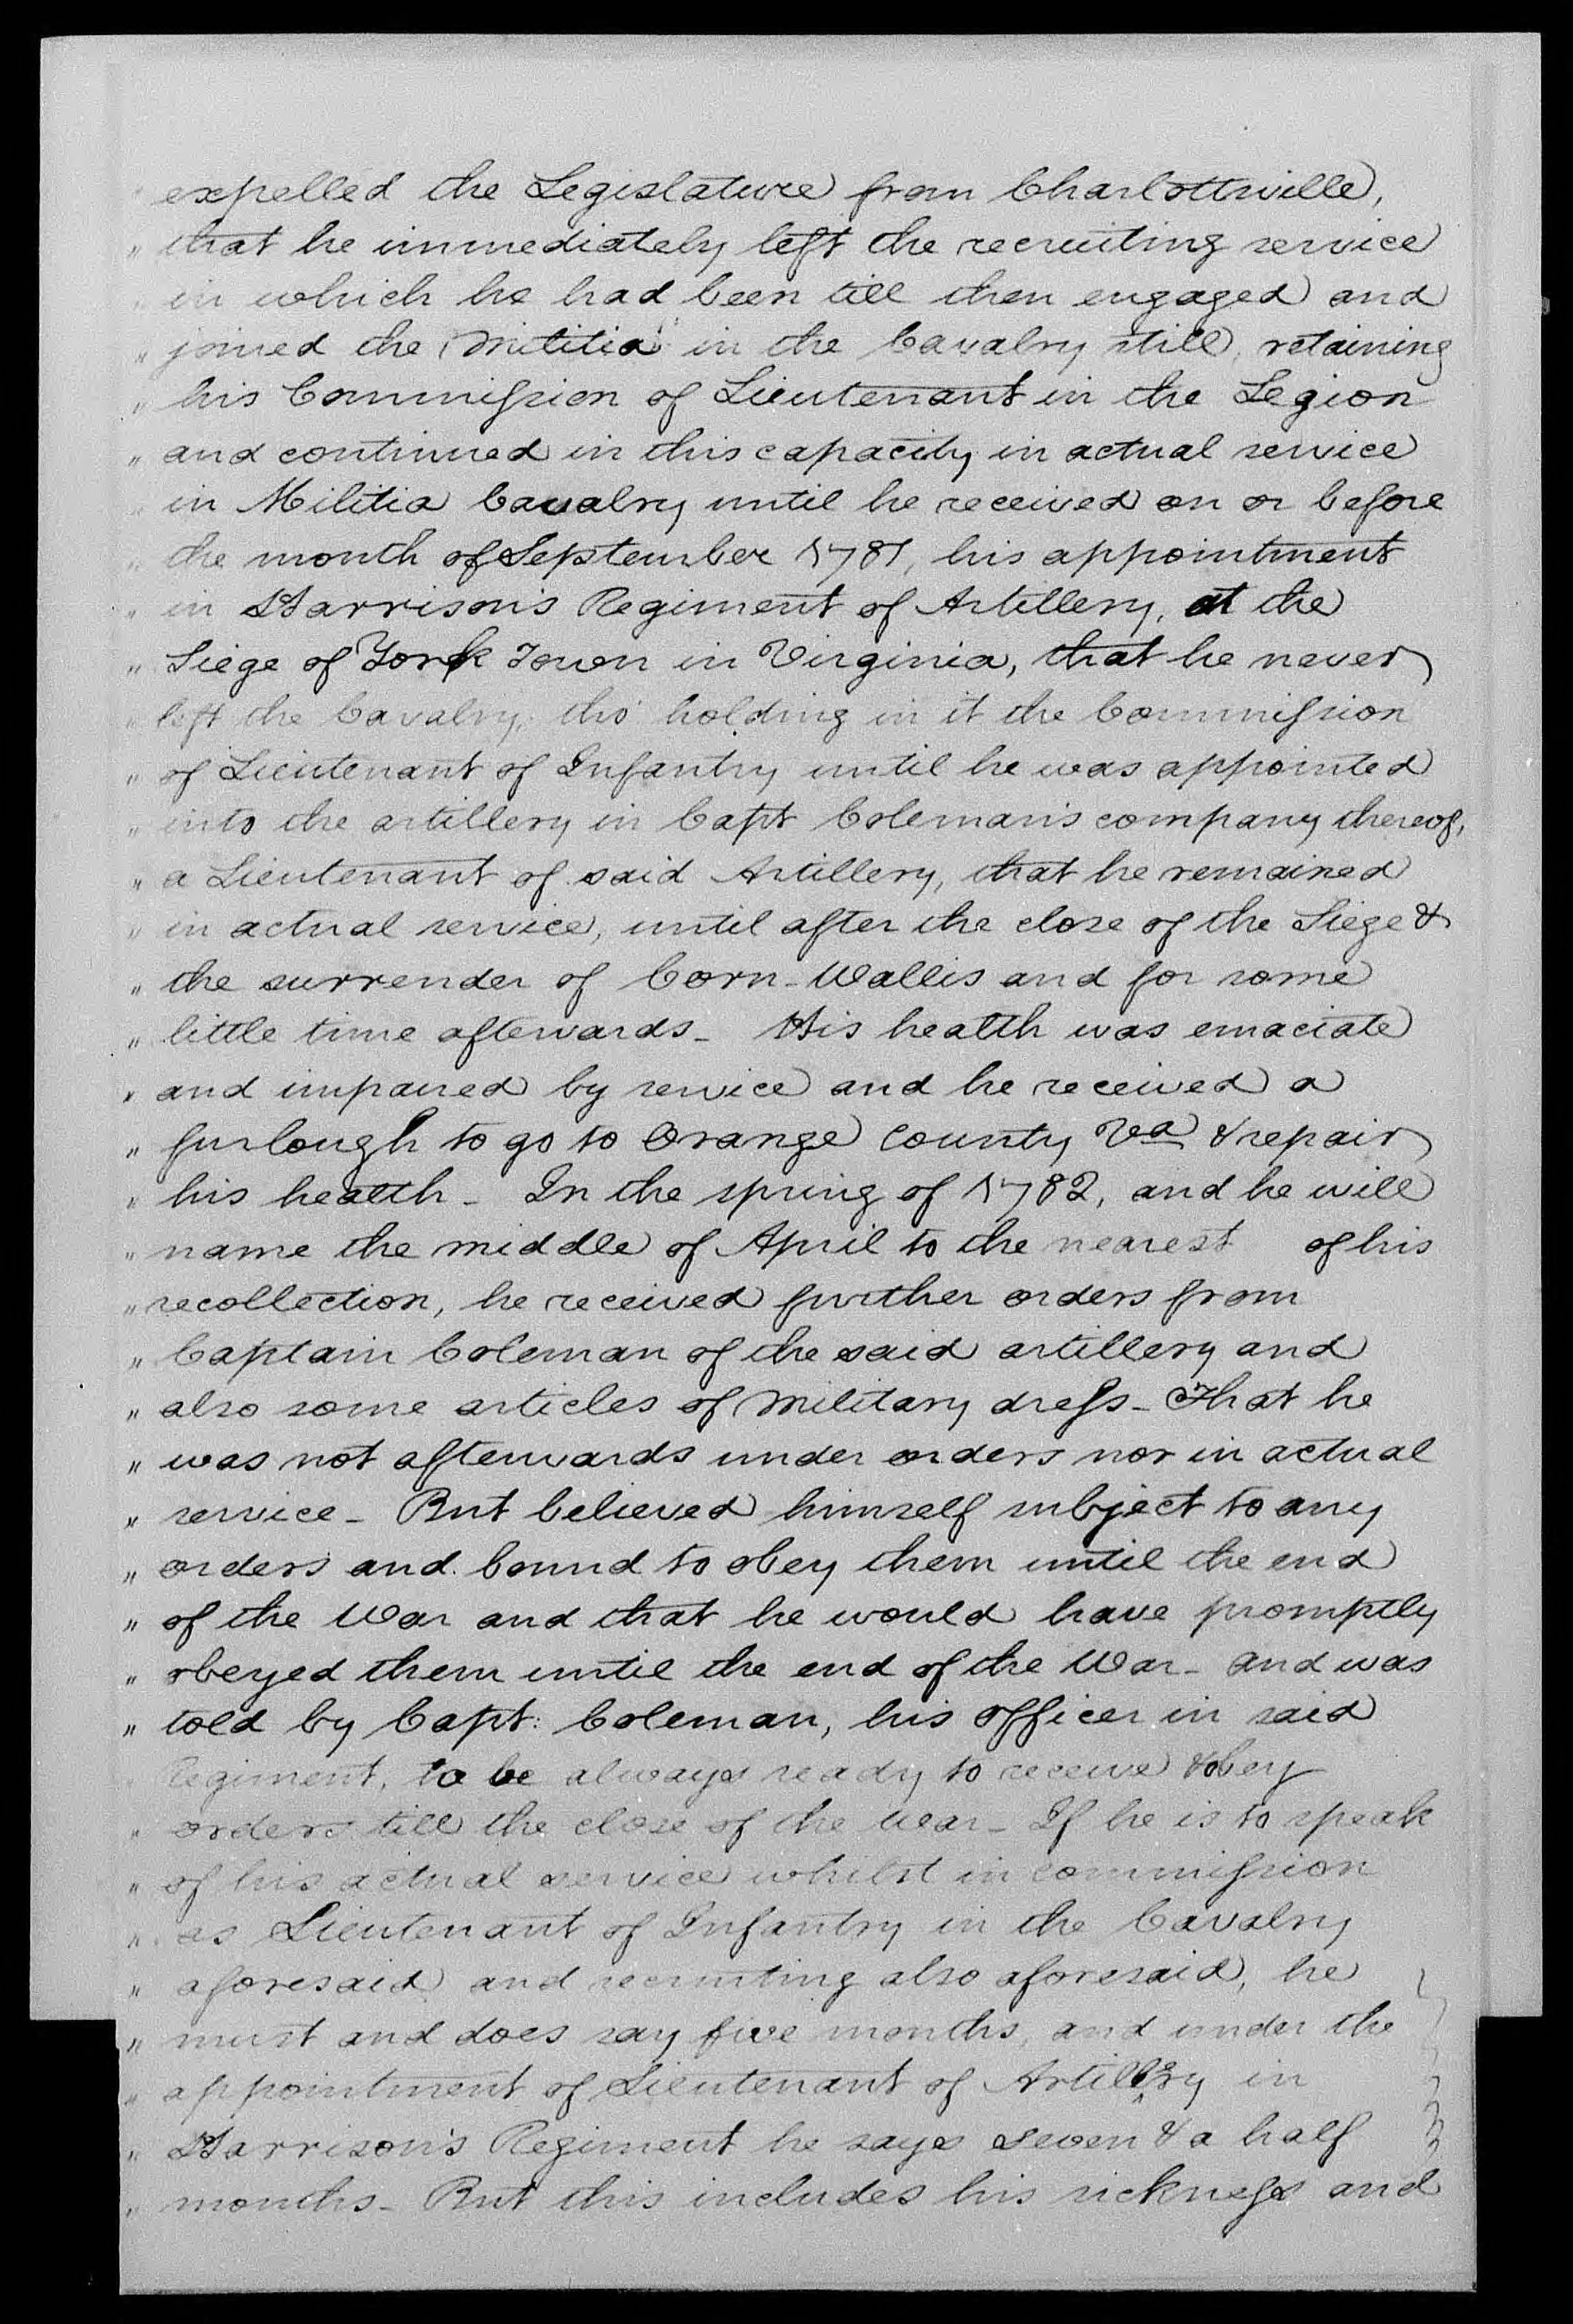 " expelled the Legislature from Charlottville,
" that he immediately left the recruiting service
" in which he had been till then engaged and
" joined the Militia in the Cavalry still, retaining
" his Commission of Lieutenant in the Legion
" and continued in this capacity in actual service
" in Militia Cavalry until he received on or before
" the month of September 1781, his appointment
" in Harrison's Regiment of Artillery, at the
" Siege of York Town in Virginia, that he never
" left the Cavalry, tho' holding in it the Commission
" of Lieutenant of Infantry until he was appointed
" into the artillery in Capt Coleman's company thereof,
" a Lieutenant of said Artillery, that he remained
" in actual service, until after the close of the Siege &
" the surrender of Corn-Wallis and for some
" little time afterwards_ His health was emaciate
" and impaired by service and he received a
" furlough to go to Orange County Va & repair
" his health_ In the spring of 1782, and he will
" name the middle of April to the nearest of his
" recollection, he received further orders from
" Captain Coleman of the said artillery and
" also some articles of military dress_ That he
" was not afterwards under orders nor in actual
" service_ But believed himself subject to any
" orders and bound to obey them until the end
" of the War and that he would have promptly
" obeyed them until the end of the War_ and was
" told by Capt: Coleman, his officer in said
" Regiment, to be always ready to receive & obey
" orders till the close of the War_ If he is to speak
" of his actual service whilst in commission
" as Lieutenant of Infantry in the Cavalry
" aforesaid and recruiting also aforesaid, he
" must and does say five months, and under the
" appointment of Lieutenant of Artillery in
" Harrison's Regiment he says seven & a half
" months_ But this includes his sickness and